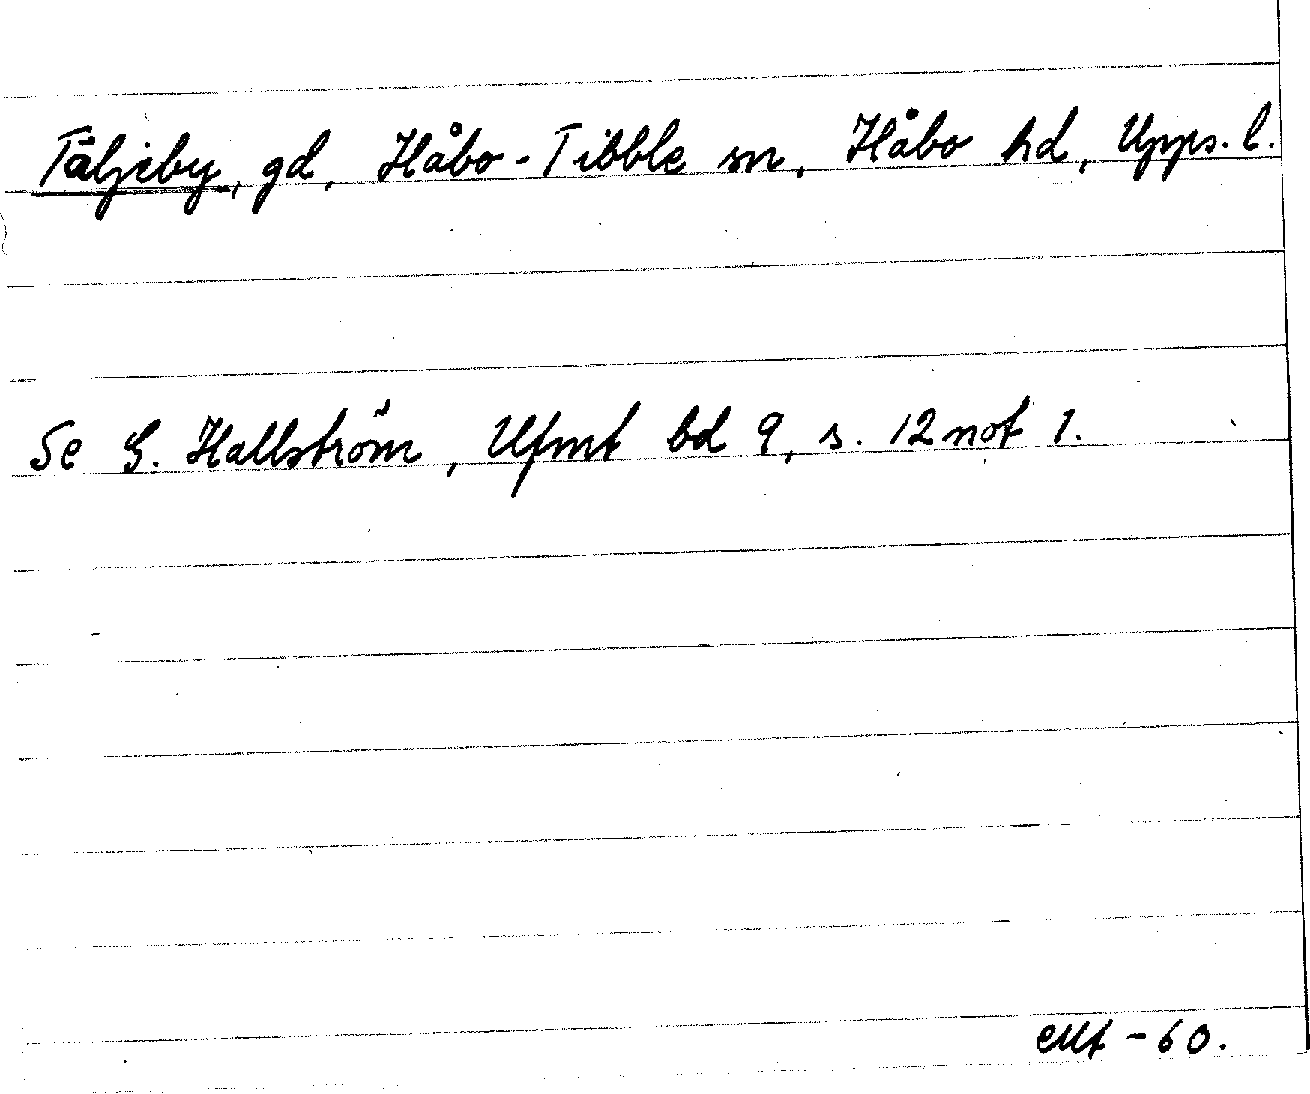 Täljeby, gd, Håbo-Tibble sn, Håbo hd, Upps. l.
Se G. Hallström, Ufmt bd 9, s. 12 not 1.
-60.